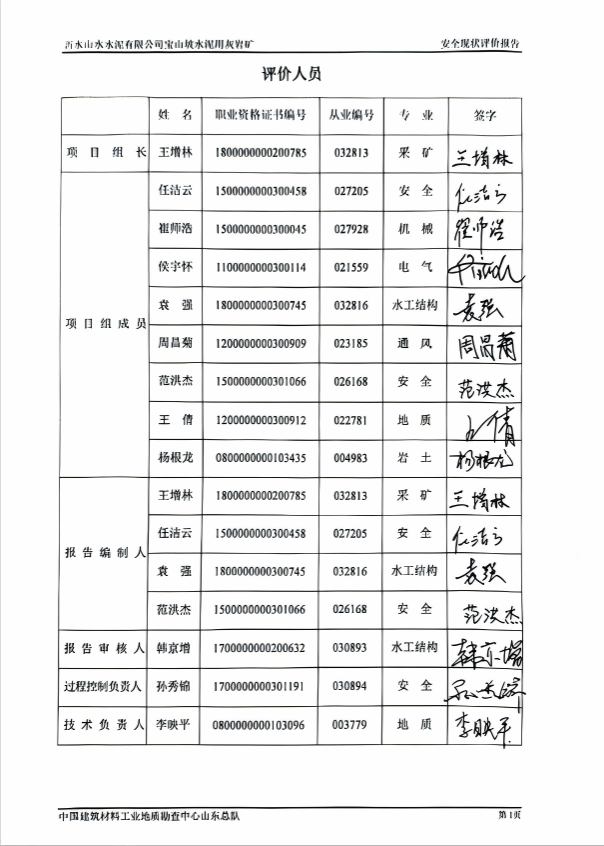 沂水山水水泥有限公司宝山坡水泥用灰岩矿 安全现状评价报告
评价人员
姓 名 职业资格证书编号 从业编号 专 业 签字
项 目 组 长 王增林 1800000000200785 032813 采 矿 王增林
项目组成员
任洁云 1500000000300458 027205 安 全 任洁云
崔师浩 1500000000300045 027928 机 械 崔师浩
侯宇怀 1100000000300114 021559 电 气
袁 强 1800000000300745 032816 水工结构 袁强
周昌菊 1200000000300909 023185 通 风 周昌菊
范洪杰 1500000000301066 026168 安 全 范洪杰
王 倩 1200000000300912 022781 地 质 王倩
杨根龙 0800000000103435 004983 岩 土 杨根龙
报告编制人
王增林 1800000000200785 032813 采 矿 王增林
任洁云 1500000000300458 027205 安 全 任洁云
袁 强 1800000000300745 032816 水工结构 袁强
范洪杰 1500000000301066 026168 安 全 范洪杰
报告审核人 韩京增 1700000000200632 030893 水工结构 韩京增
过程控制负责人 孙秀锦 1700000000301191 030894 安 全
技术负责人 李映平 0800000000103096 003779 地 质 李映平
中国建筑材料工业地质勘查中心山东总队 第1页